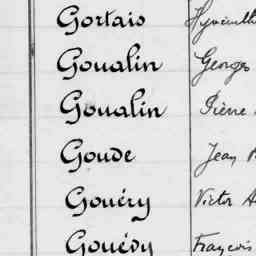 Gortais Hyacinth
Goualin Georges
Goualin Pierre
Goude Jean
Gouéry Victor A
Gouévy François